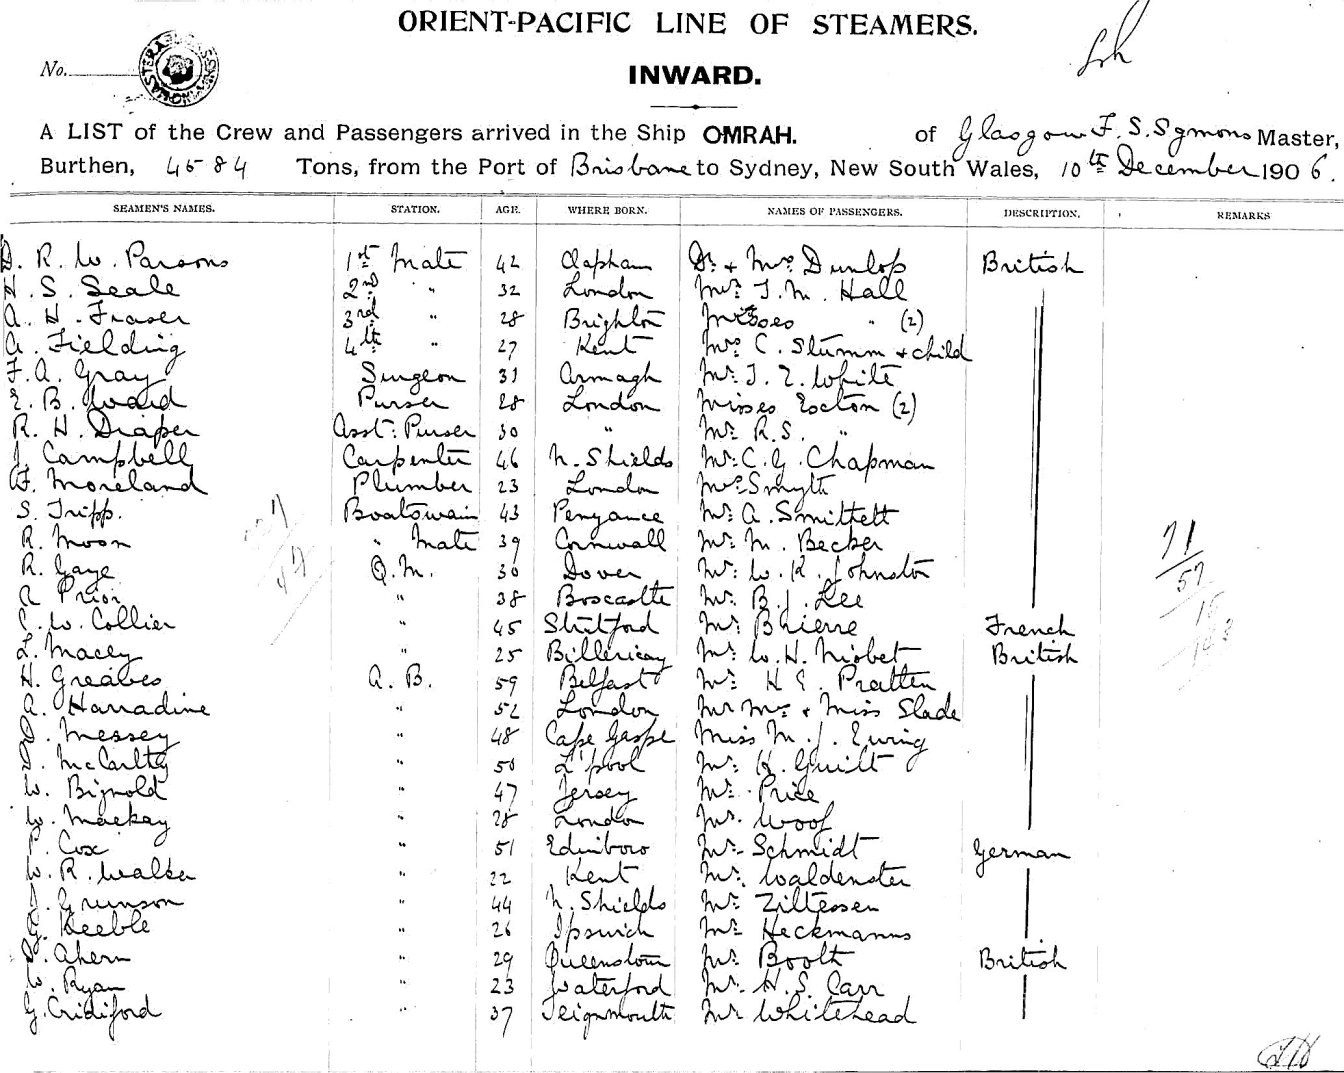 ORIENT-PACIFIC LINE OF STEAMERS.
No.
INWARD.
A LIST of the Crew and Passengers arrived in the Ship OMRAH. of Glasgow F. S. Symons Master,
Burthen, 4584 Tons, from the Port of Brisbane to Sydney, New South Wales, 10th December 1906.
SEAMEN'S NAMES. STATION. AGE. WHERE BORN. NAMES OF PASSENGERS. DESCRIPTION. REMARKS
D. R. W. Parsons 1st Mate 42 Clapham Dr. & Mrs. Dunlop British
H. S. Seale 2nd " 32 London Mr. J. M. Hall
A. H. Fraser 3rd " 28 Brighton Misses " (2)
A. Fielding 4th " 27 Kent Mrs. C. Stumm & child
F. A. Gray Surgeon 31 Armagh Mr. J. T. White
E. B. Ward Purser 28 London Misses Escton (2)
R. H. Draper Asst: Purser 30 " Mr. R. S. "
J. Campbell Carpenter 46 N. Shields Mr. C. G. Chapman
F. Moreland Plumber 23 London Mrs. Smyth
S. Tripp. Boatswain 43 Penzance Mr. A. Smithett
R. Moon " Mate 39 Cornwall Mr. M. Becker 71
R. Gaye Q. M. 30 Dover Mr. W. R. Johnston 57
A Prior " 38 Boscastle Mr. B. J. Lee
C. W. Collier " 45 Stratford Mr. Brierre French
L. Macey " 25 Billericay Mr. W. H. Nisbet British
H. Greaves A. B. 59 Belfast Mr. H E. Pratten
A. Harradine " 52 London Mr Mrs & Miss Slade
D. Messey " 48 Cape Gaspe Miss M. J. Ewing
D. McCarthy " 50 L'pool Mr. H. Guilt
W. Bignold " 47 Jersey Mr. Price
W. Mackay " 28 London Mr. Woof
P. Cox " 51 Edinboro Mr. Schmidt German
W. R. Walker " 22 Kent Mr. Waldenster
J. Grunson " 44 N. Shields Mr. Ziltessen
G. Keeble " 26 Ipswich Mr. Heckmanns
P. Ahern " 29 Queenstown Mr. Booth British
W. Ryan " 23 Waterford Mr. H. S. Carr
G. Cridiford " 37 Teignmouth Mr Whitehead